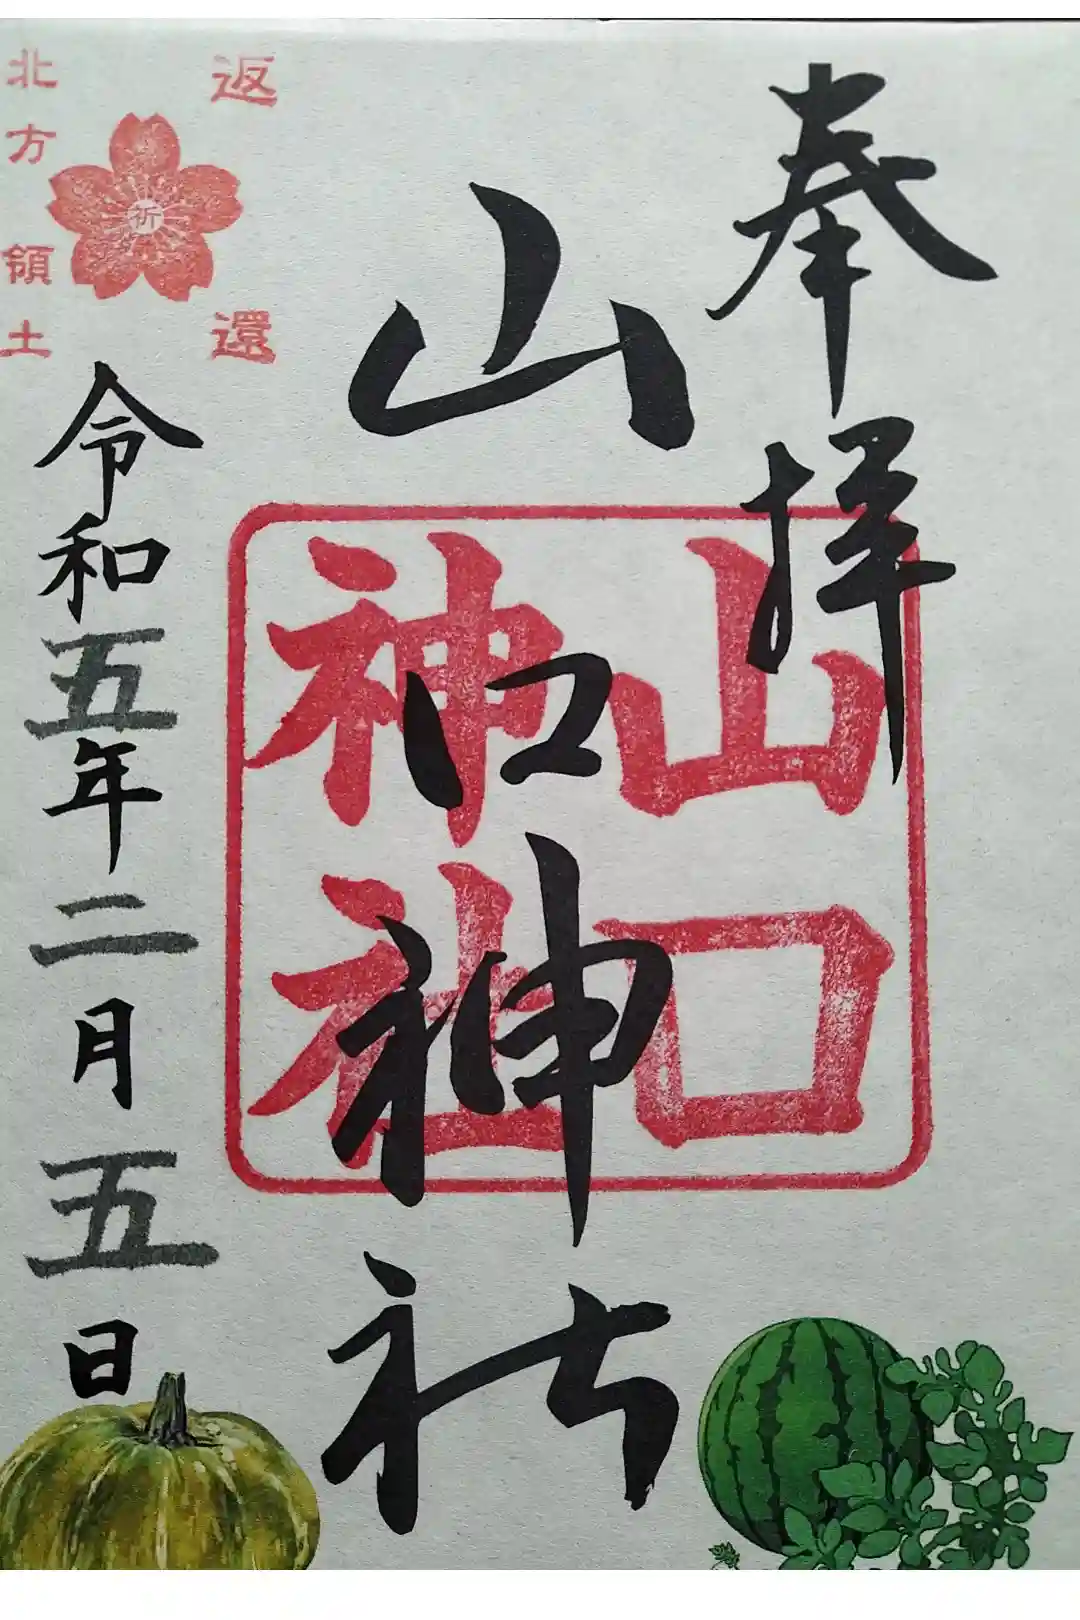 奉拝
山口神社
山口
神社
返還
祈
北方領土
令和五年二月五日